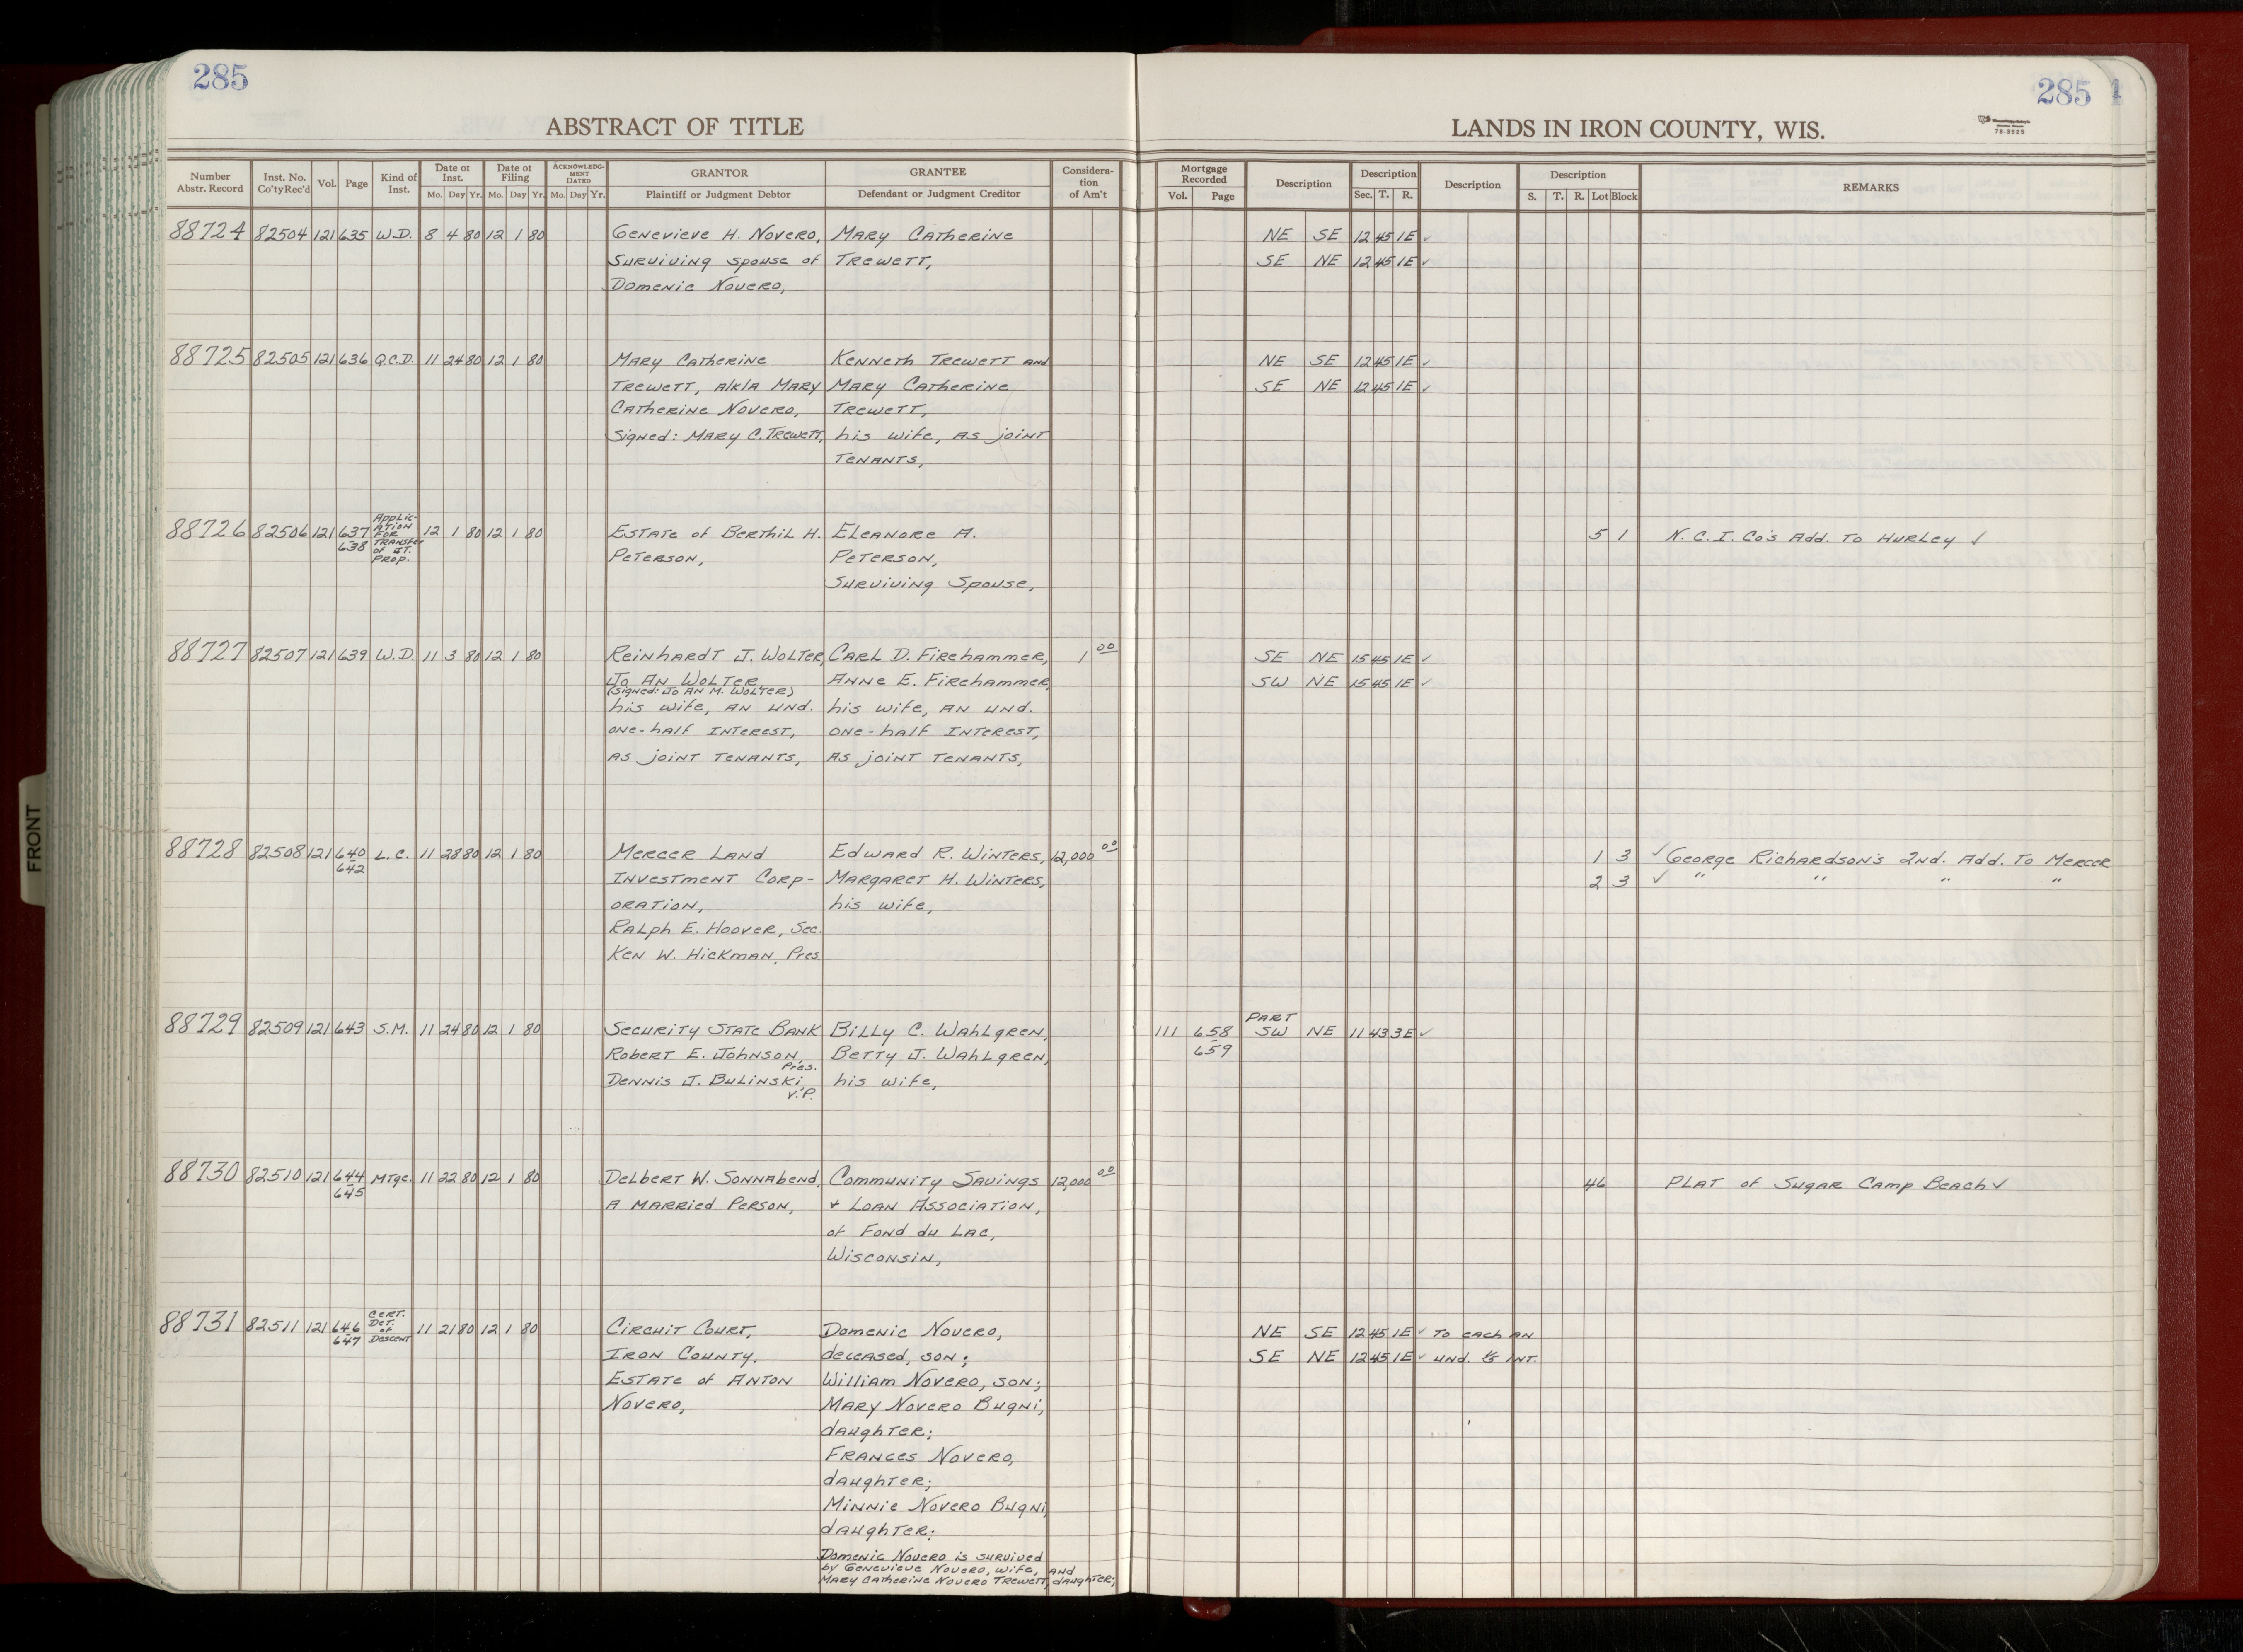 285
285
ABSTRACT OF TITLE
LANDS IN IRON COUNTY, WIS.
78-3625
Number Abstr. Record Inst. No. Co'ty Rec'd Vol. Page Kind of Inst. Date of Inst. Mo. Day Yr. Date of Filing Mo. Day Yr. ACKNOWLEDGMENT DATED Mo. Day Yr. GRANTOR Plaintiff or Judgment Debtor GRANTEE Defendant or Judgment Creditor Consideration of Am't Mortgage Recorded Vol. Page Description Description Sec. T. R. Description Description S. T. R. Lot Block REMARKS
88724 82504 121 635 W.D. 8 4 80 12 1 80 Genevieve H. Novero, Mary Catherine NE SE 12 45 1E ✓
Surviving spouse of Trewett, SE NE 12 45 1E ✓
Domenic Novero,
88725 82505 121 636 Q.C.D. 11 24 80 12 1 80 Mary Catherine Kenneth Trewett and NE SE 12 45 1E ✓
Trewett, a/k/a Mary Mary Catherine SE NE 12 45 1E ✓
Catherine Novero, Trewett,
Signed: Mary C. Trewett, his wife, as joint
tenants,
88726 82506 121 637-638 Application for Transfer of JT. Prop. 12 1 80 12 1 80 Estate of Berthil H. Eleanore A. 5 1 N. C. I. Co's Add. to Hurley ✓
Peterson, Peterson,
Surviving Spouse,
88727 82507 121 639 W.D. 11 3 80 12 1 80 Reinhardt J. Wolter, Carl D. Firehammer, 1 00 SE NE 15 45 1E ✓
Jo An Wolter Anne E. Firehammer, SW NE 15 45 1E ✓
(Signed: Jo An M. Wolter)
his wife, an und. his wife, an und.
one-half interest, one-half interest,
as joint tenants, as joint tenants,
88728 82508 121 640-642 L.C. 11 28 80 12 1 80 Mercer Land Edward R. Winters, 12,000 00 1 3 ✓ George Richardson's 2nd. Add. to Mercer
Investment Corp- Margaret H. Winters, 2 3 ✓ " " " "
oration, his wife,
Ralph E. Hoover, Sec.
Ken W. Hickman, Pres.
88729 82509 121 643 S.M. 11 24 80 12 1 80 Security State Bank Billy C. Wahlgren, 111 658-659 Part SW NE 11 43 3E ✓
Robert E. Johnson, Pres. Betty J. Wahlgren,
Dennis J. Bulinski, V.P. his wife,
88730 82510 121 644-645 Mtge. 11 22 80 12 1 80 Delbert W. Sonnabend, Community Savings 12,000 00 46 Plat of Sugar Camp Beach ✓
a married person, + Loan Association,
of Fond du Lac,
Wisconsin,
88731 82511 121 646-647 Cert. Det. of Descent 11 21 80 12 1 80 Circuit Court, Domenic Novero, NE SE 12 45 1E ✓ to each an
Iron County. deceased, son; SE NE 12 45 1E ✓ und. 1/5 int.
Estate of Anton William Novero, son;
Novero, Mary Novero Bugni,
daughter;
Frances Novero,
daughter;
Minnie Novero Bugni
daughter;
Domenic Novero is survived
by Genevieve Novero, wife, and
Mary Catherine Novero Trewett, daughter;
FRONT